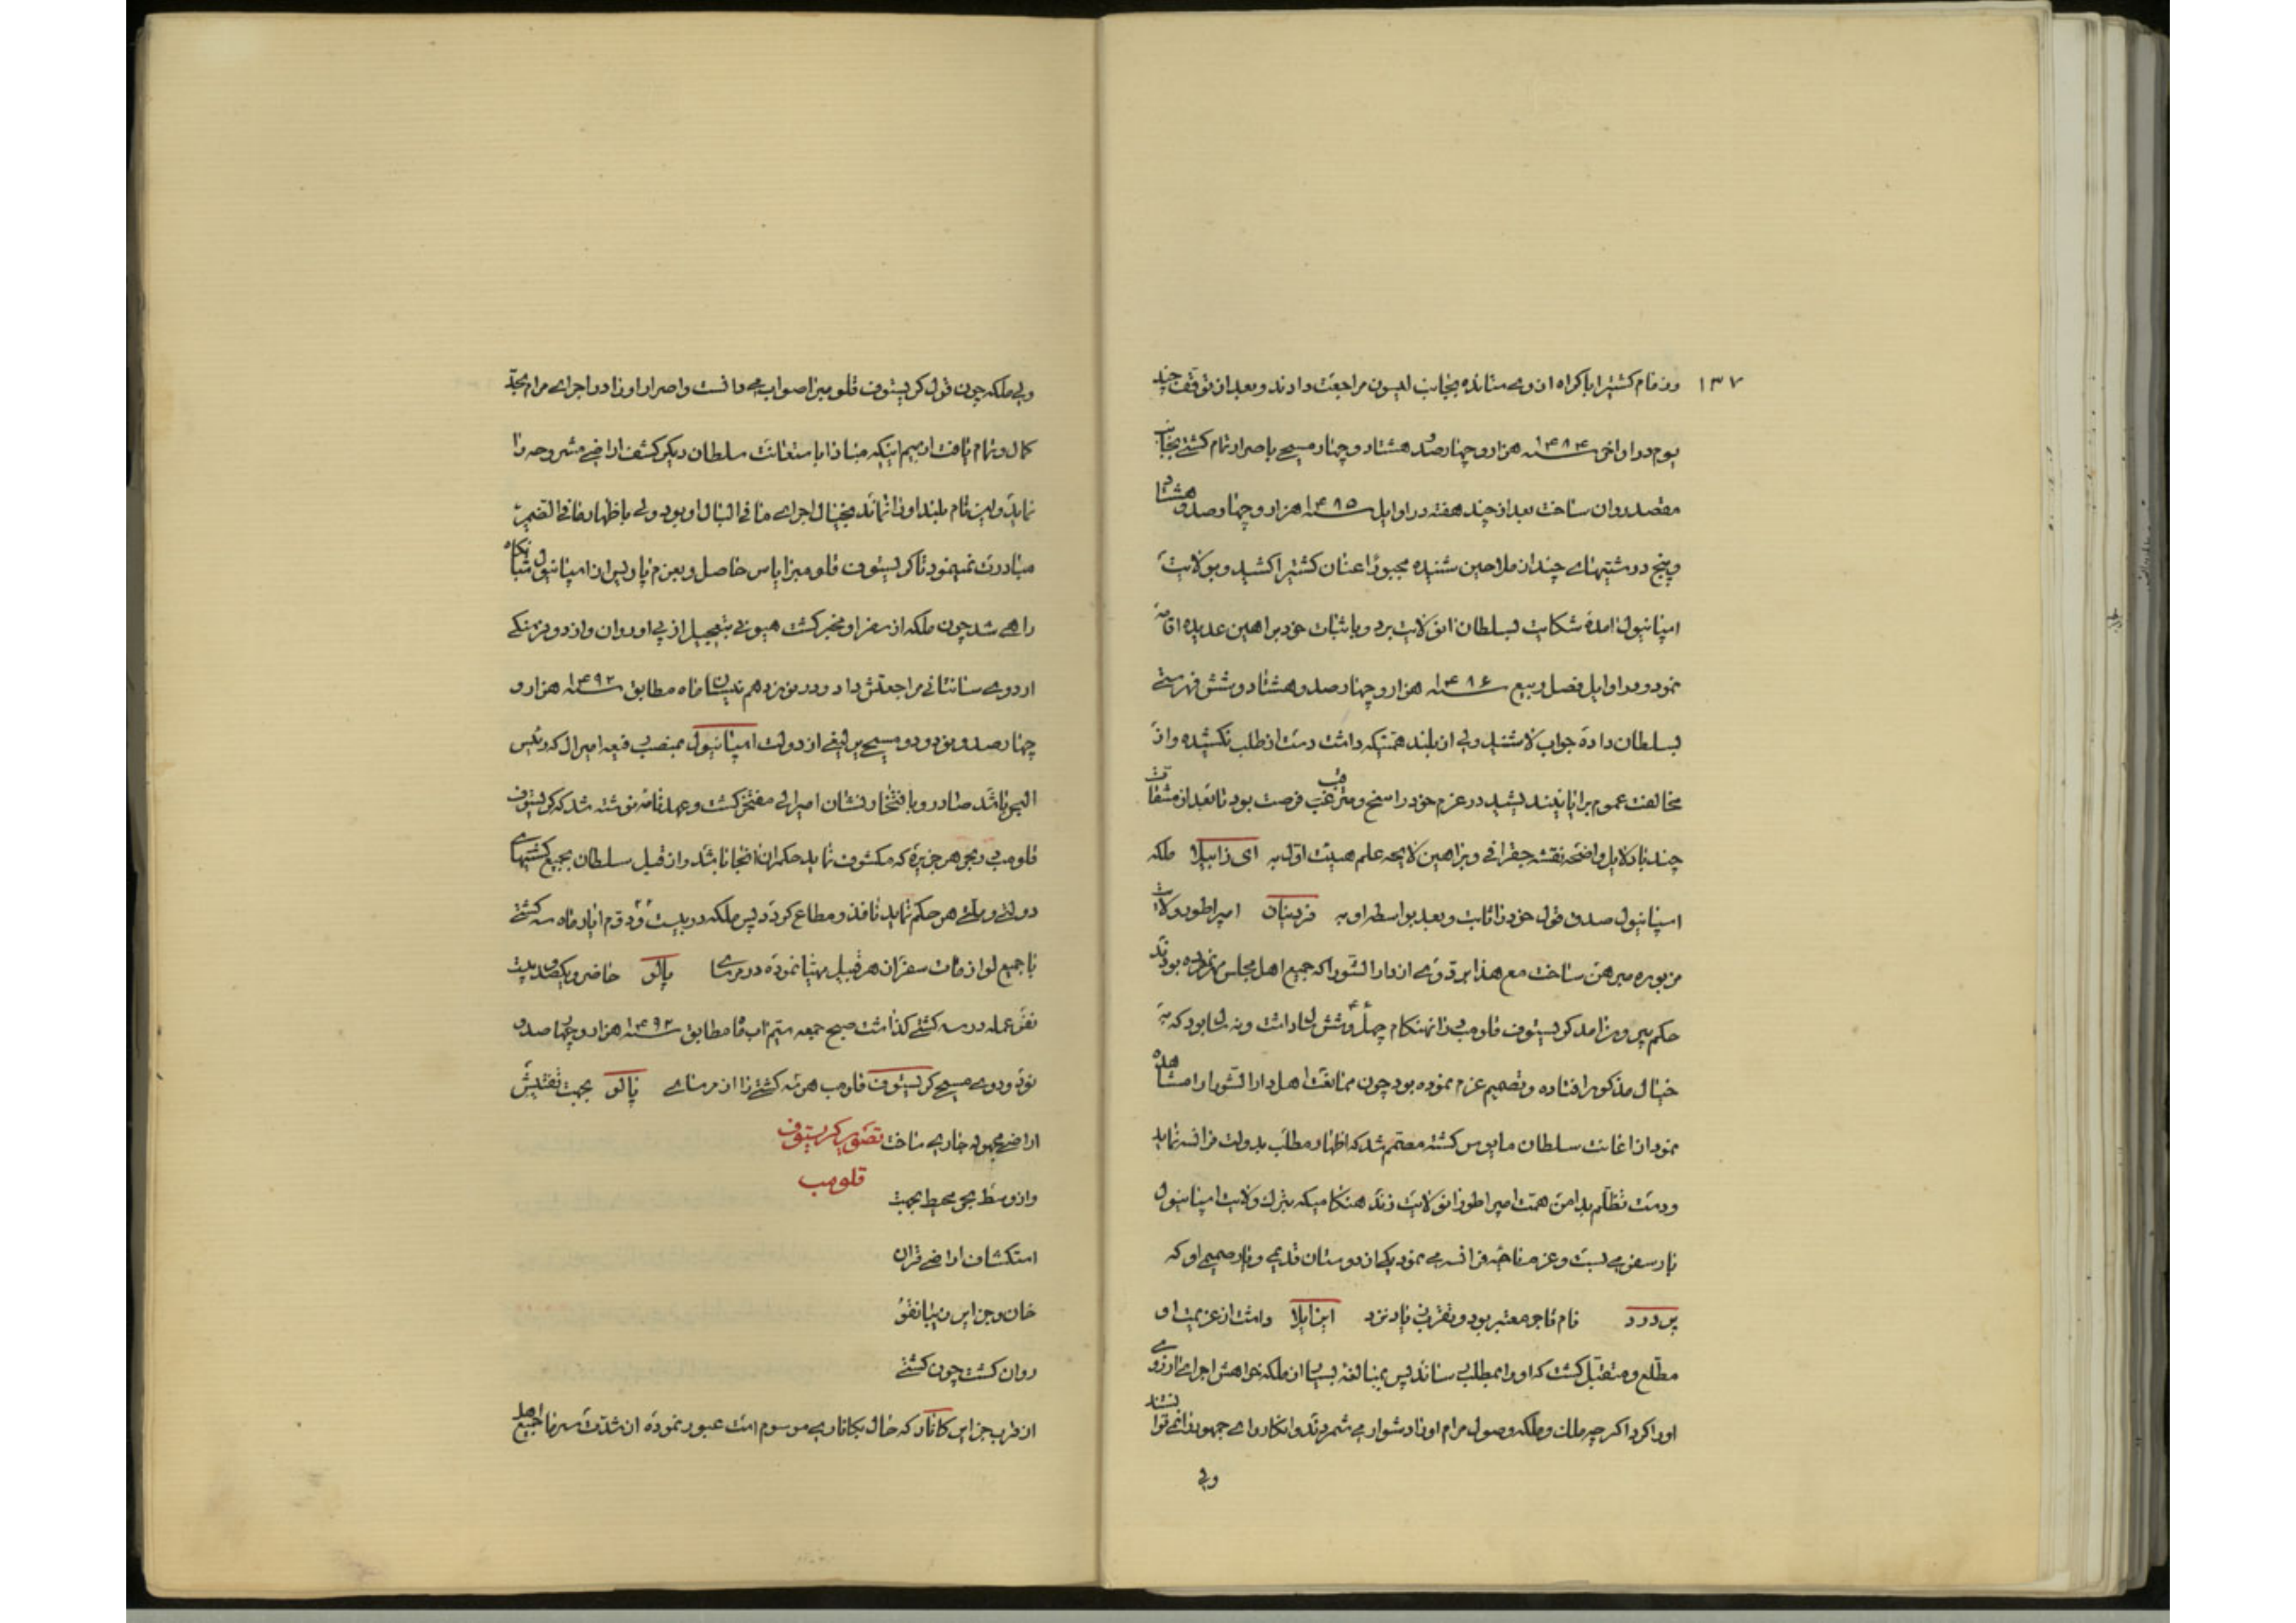 ۱۳۷
وزمام کشتیرا باکراه از وی ستانده بجانب لیسون مراجعت دادند و بعد از توقف چند
یوم در اواخر سنه ۱۴۸۴ هزار و چهارصد و هشتاد و چهار مسیحی باصرار تمام کشتی بجانب
مقصد روان ساخت بعد از چند هفته در اوایل سنه ۱۴۸۵ هزار و چهارصد و هشتاد
و پنج درشتیهای چند از ملاحین شنیده مجبوراً عنان کشتیرا کشید و بولایت
اسپانیول آمده شکایت بسلطان آنولایت برد و باثبات خود براهین عدیده اقامه
نمود و در اوایل فصل ربیع سنه ۱۴۸۶ هزار و چهارصد و هشتاد و شش فهرستی
بسلطان داده جواب لا شنید ولی از بلند همتیکه داشت دست از طلب نکشیده و از
مخالفت عموم برایا نیندیشید در عزم خود راسخ و مترقب فرصت بود تا بعد از مشقات
چند با دلایل واضحه نقشه جغرافی و براهین لایحه علم هیئت اول به ای زابیلا ملکه
اسپانیول صدق قول خود را ثابت و بعد بواسطه او به فردینان امپراطور ولایت
مزبوره مبرهن ساخت مع هذا بر رد وی از دار الشورا که جمیع اهل مجلس مهر کرده بودند
حکم بیرون آمد کریستوف قلومب در آنهنگام چهل و شش سال داشت و نه سال بود که به
خیال مذکور افتاده و تصمیم عزم نموده بود چون ممانعت اهل دار الشورا را مشاهده
نمود از اعانت سلطان مایوس گشته مصمم شد که اظهار مطلب بدولت فرانسه نماید
و دست تظلم بدامن همت امپراطور آنولایت زند هنگامیکه بترک ولایت اسپانیول
بار سفر می بست و عزم ناحیه فرانسه می نمود یکی از دوستان قدیمی و یار صمیمی او که
پردرد نام تاجر معتبر بود و تقرب زیاد نزد ایزابلا داشت از عزیمت او
مطلع و متقبل گشت که او را بمطلب رساند پس بمبالغه بسیار از ملکه خواهش اجرای آرزوی
او را کرد اگرچه ملک و ملکه وصول مرام او را دشوار می شمردند و انکار رای جمهور را نمی توانستند
ولی
ولی ملکه چون قول کریستوف قلومب را صواب می دانست و اصرار او را در اجرای مرام بحد
کمال و تمام یافت از بیم اینکه مبادا باستعانت سلطان دیگر کشف اراضی مشروحه را
نماید و این نام بلند او را نماند بخیال اجرای ما فی البال او بود ولی باظهار ما فی الضمیر
مبادرت نمی نمود تا کریستوف قلومب را یاس حاصل و بعزم پاریس از اسپانیول شبانگاه
راهی شد چون ملکه از سفر او مخبر گشت هیونی بتعجیل از پی او روان و از دو فرسنگی
اردوی سانتافی مراجعتش داد و در روز نوزدهم نیسان ماه مطابق سنه ۱۴۹۲ هزار و
چهارصد و نود و دو مسیحی برلیغی از دولت اسپانیول بمنصب رفیعه امیرال که رئیس
البحر باشد صادر و بافتخار نشان امیرالی مفتخر گشت و عهدنامه نوشته شد که کریستوف
قلومب در بحر هر جزیره که مکشوف نماید حکمران آنجا باشد و از قبل سلطان بجمیع کشتیهای
دولتی و ملتی هر حکم نماید نافذ و مطاع گردد پس ملکه در بیست و دوم ایار ماه سه کشتی
با جمیع لوازمات سفر از هر قبیل مهیا نموده در مرسای پالو حاضر و یکصد و بیست
نفر عمله در سه کشتی گذاشت صبح جمعه سیم آب ماه مطابق سنه ۱۴۹۲ هزار و چهارصد و
نود و دوی مسیحی کریستوف قلومب هر سه کشتی را از مرسای پالو بجهت تفتیش
اراضی مجهوله جاری ساخت تصویر کریستوف
قلومب
و از وسط بحر محیط بجهت
استکشاف اراضی قرال
خان و جزایر رمپانقو
روان گشت چون کشتی
از قرب جزایر کانار که حال بکاناری موسوم است عبور نموده از شدت سرما جمیع اهل